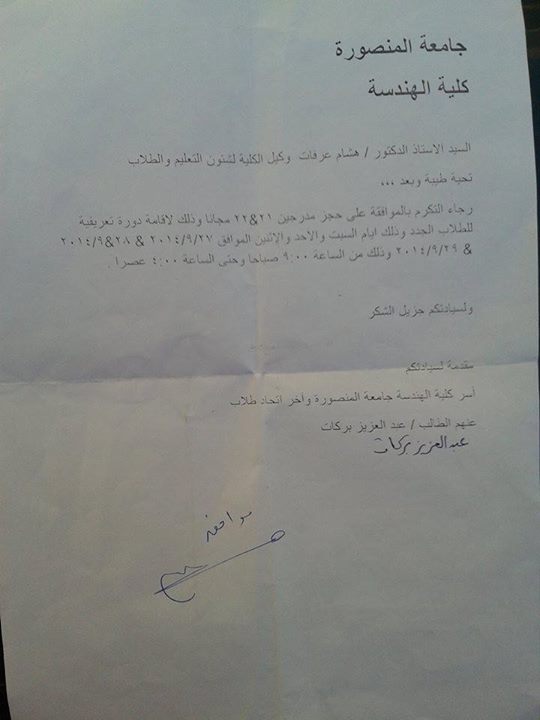 جامعة المنصورة
كلية الهندسة
السيد الاستاذ الدكتور / هشام عرفات وكيل الكلية لشئون التعليم والطلاب
تحية طيبة وبعد ,,,
رجاء التكرم بالموافقة على حجز مدرجين ٢١&٢٢ مجانا وذلك لاقامة دورة تعريفية
للطلاب الجدد وذلك ايام السبت والاحد والإثنين الموافق ٢٠١٤/٩/٢٧ & ٢٠١٤/٩&٢٨
& ٢٠١٤/٩/٢٩ وذلك من الساعة ٩:٠٠ صباحا وحتى الساعة ٤:٠٠ عصرا .
ولسيادتكم جزيل الشكر
مقدمة لسيادتكم
أسر كلية الهندسة جامعة المنصورة وأخر اتحاد طلاب
عنهم الطالب / عبد العزيز بركات
عبد العزيز بركات
موافق